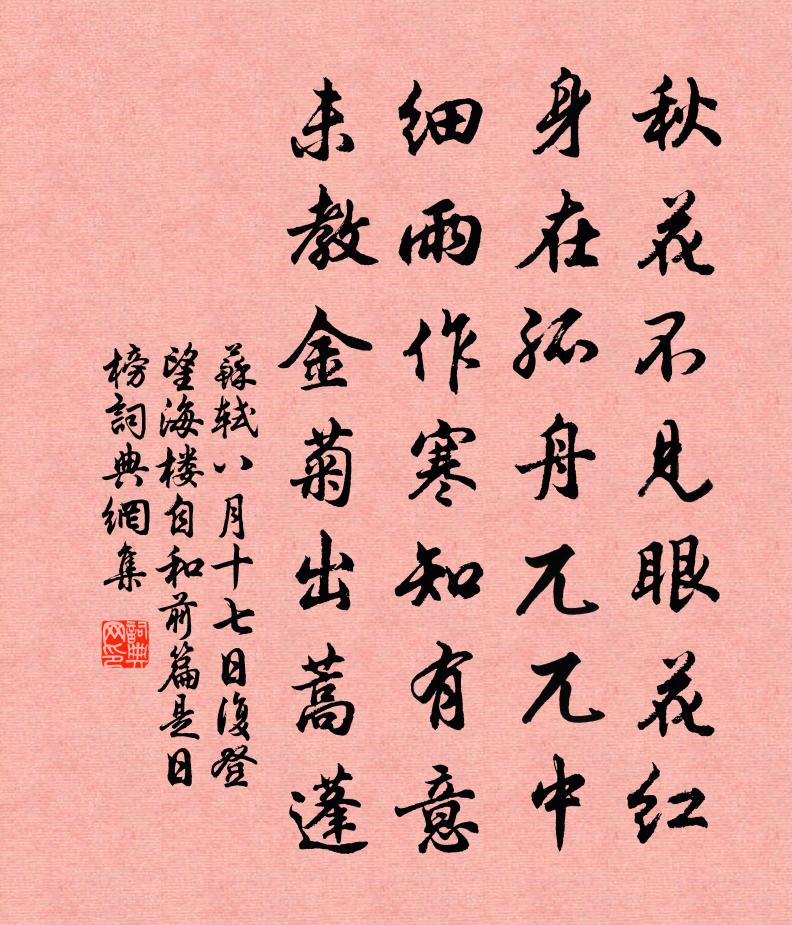 秋花不見眼花红
身在孤舟兀兀中
细雨作寒知有意
未教金菊出蒿蓬
蘇轼八月十七日復登
望海楼自和前篇是日
榜詞典網集
詞典
网印